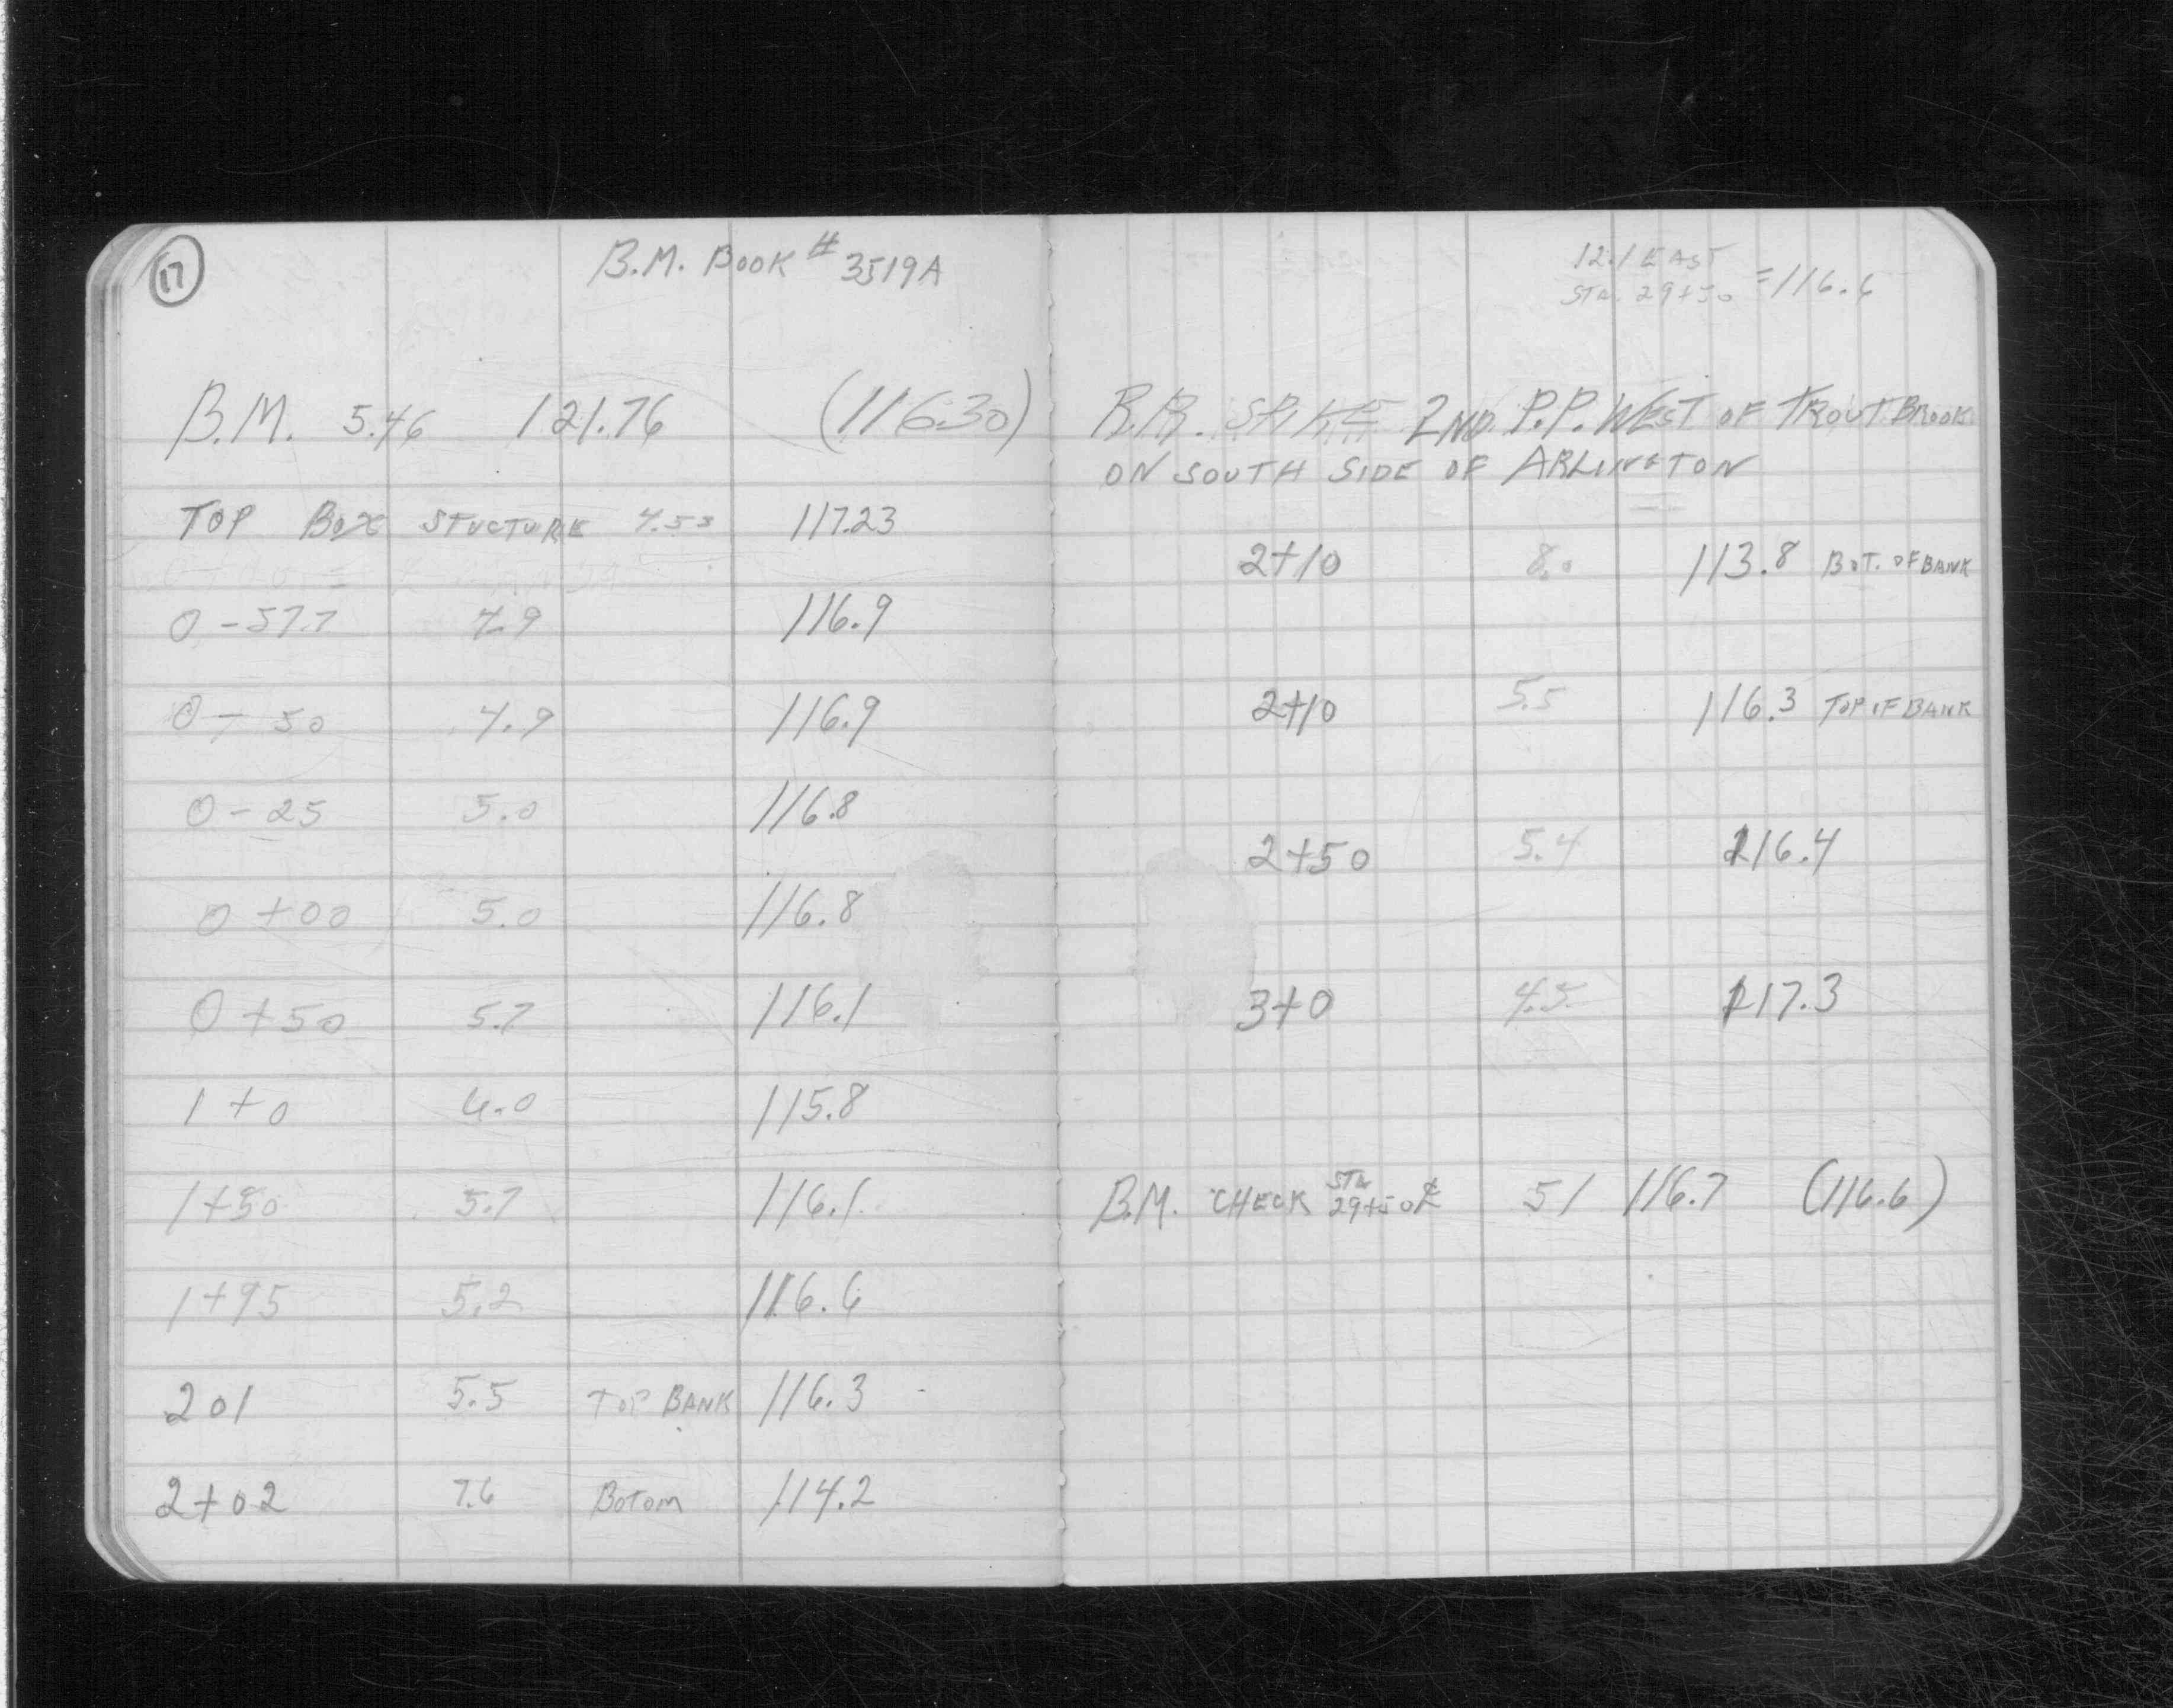 17
B.M. BOOK # 3519A
B.M. 5.46 121.76 (116.30)
TOP BOX STUCTURE 4.53 117.23
0-57.7 4.9 116.9
0-50 4.9 116.9
0-25 5.0 116.8
0+00 5.0 116.8
0+50 5.7 116.1
1+0 6.0 115.8
1+50 5.7 116.1
1+95 5.2 116.6
201 5.5 TOP BANK 116.3
2+02 7.6 BOTOM 114.2
12.1 EAST
STA. 29+50 =116.6
R.R. SPIKE 2ND P.P. WEST OF TROUT BROOK
ON SOUTH SIDE OF ARLINGTON
2+10 8.0 113.8 BOT. OF BANK
2+10 5.5 116.3 TOP OF BANK
2+50 5.4 116.4
3+0 4.5 117.3
B.M. CHECK STA 29+50 ℄ 51 116.7 (116.6)